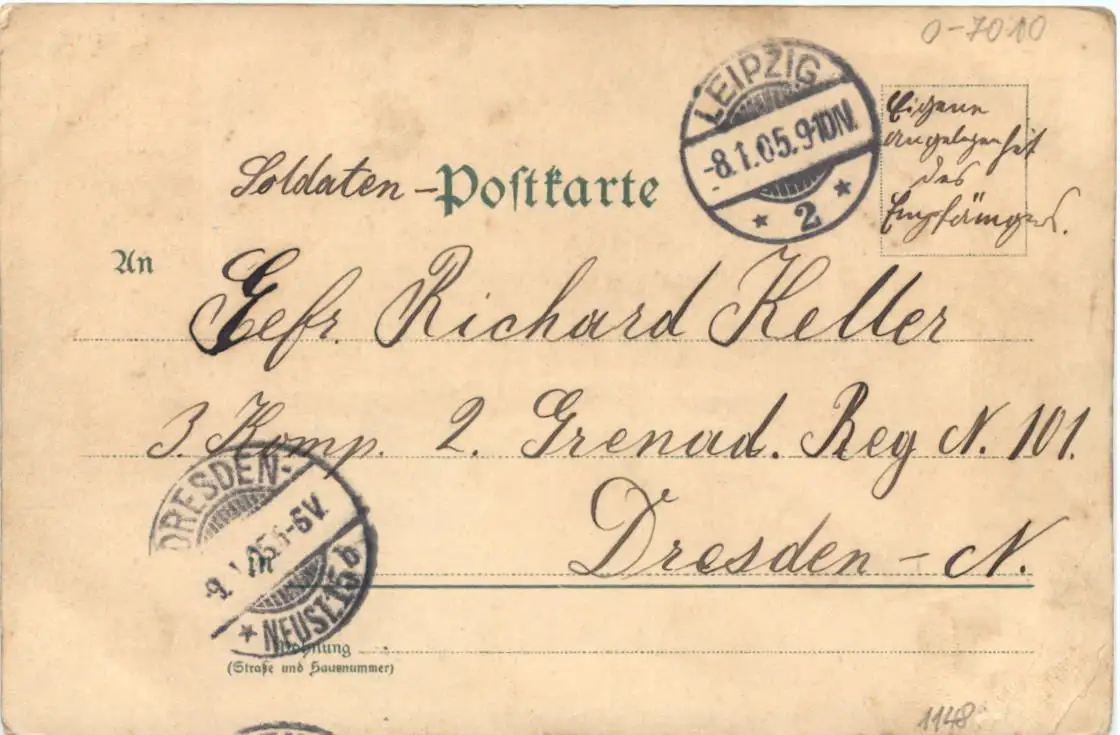 0-7010
LEIPZIG
-8.1.05.9-10N.
* 2 *
Eigene
Angelegenheit
des
Empfängers.
Soldaten-Postkarte
An
Gefr. Richard Keller
3. Komp. 2. Grenad. Reg N. 101.
Dresden-N.
DRESDEN-
05.5-6V.
* NEUST. 15 b
Wohnung
(Straße und Hausnummer)
1148